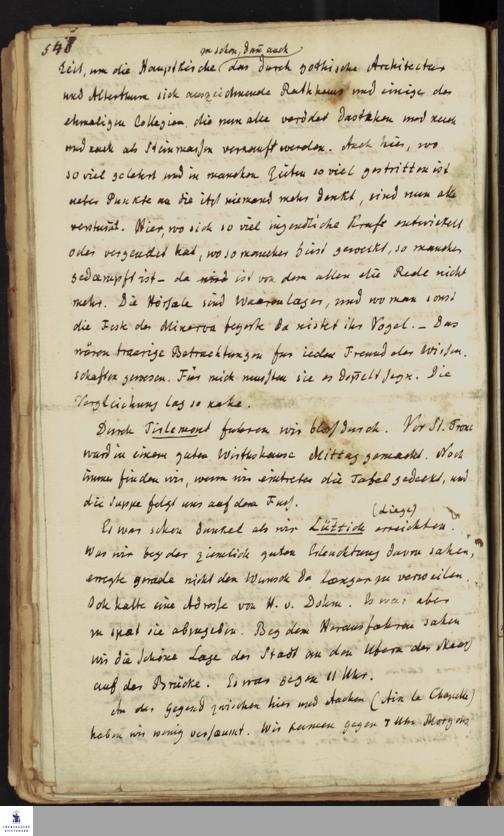 548
zu sehen, dann auch
Zeit, um die Hauptkirche das durch gothische Architectur
und Alterthum sich auszeichnende Rathhaus und einige der
ehmaligen Collegien, die nun alle verödet dastehen und auch
und auch als Steinmassen verkauft werden. Auch hier, wo
so viel gelehrt und in manchen Zeiten so viel gestritten ist
ueber Punkte an die itzt niemand mehr denkt, sind nun alle
verstumt. Hier, wo sich so viel iugendliche Kraft entwickelt
oder vergeudet hat, wo so mancher Geist geweckt, so mancher
gedaempft ist – da ist von dem allen die Rede nicht
mehr. Die Hörsale sind Waarenlager, und wo man sonst
die Feste der Minerva begieng da nistet ihr Vogel. – Das
wären traurige Betrachtungen fur ieden Freund der Wissen-
schaften gewesen. Für mich mussten sie es doppelt seyn. Die
Vergleichung lag so nahe.
Durch Tirlemont fuhren wir blos durch. Vor St. Trone
ward in einem guten Wirtshause Mittag gemacht. Noch
immer finden wir, wenn wir eintreten die Tafel gedeckt, und
die Suppe folgt uns auf dem Fuss.
(Liege)
Es war schon dunkel als wir Lüttich erreichten.
Was wir bey der ziemlich guten Erleuchtung davon sahen,
erregte gerade nicht den Wunsch da laenger zu verweilen.
Ich hatte eine Adresse von H. v. Dohm. Es war aber
zu spaet sie abzugeben. Bey dem Herausfahren sahen
wir die schöne Lage der Stadt an den Ufern der Maas
auf der Brücke. Es war gegen 11 Uhr.
An der Gegend zwischen hier und Aachen (Aix la Chapelle)
haben wir wenig versaeumt. Wir kamen gegen 7 Uhr Morgens